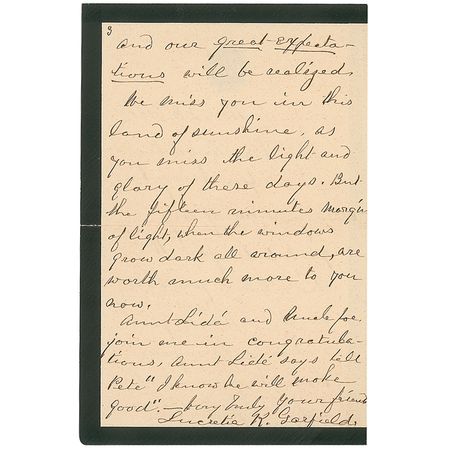 3
and our great expecta-
tions will be realized.
We miss you in this
land of sunshine, as
you miss the light and
glory of these days. But
the fifteen minutes margin
of light, when the windows
grow dark all around, are
worth much more to you
now.
Aunt Lidé and Uncle Joe
join me in congratula-
tions, Aunt Lidé says tell
Pete "I know he will make
good". – Very truly your friend
Lucretia R. Garfield.